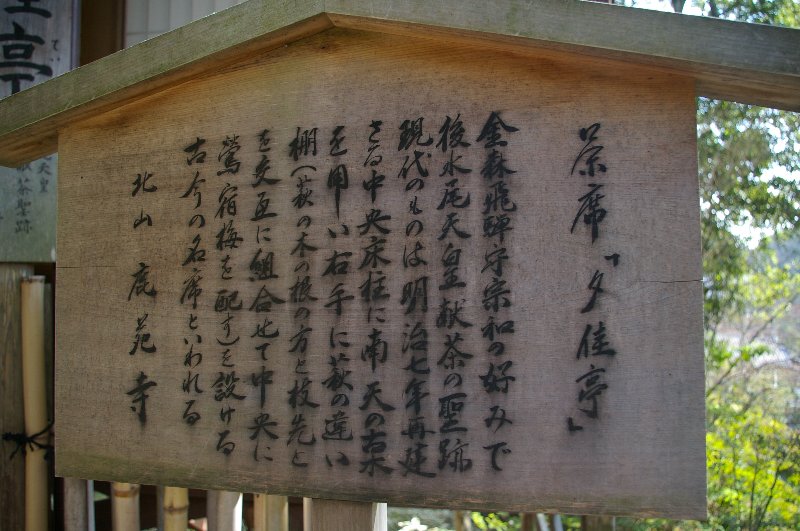 茶席「夕佳亭」
金森飛騨守宗和の好みで
後水尾天皇献茶の聖跡
現代のものは明治七年再建
さる中央床柱に南天の古木
を用い右手に萩の違い
棚(萩の木の根の方と枝先と
を交互に組合せて中央に
鶯宿梅を配す)を設ける
古今の名席といわれる
北山 鹿苑寺
亭
て
天皇
献茶聖跡